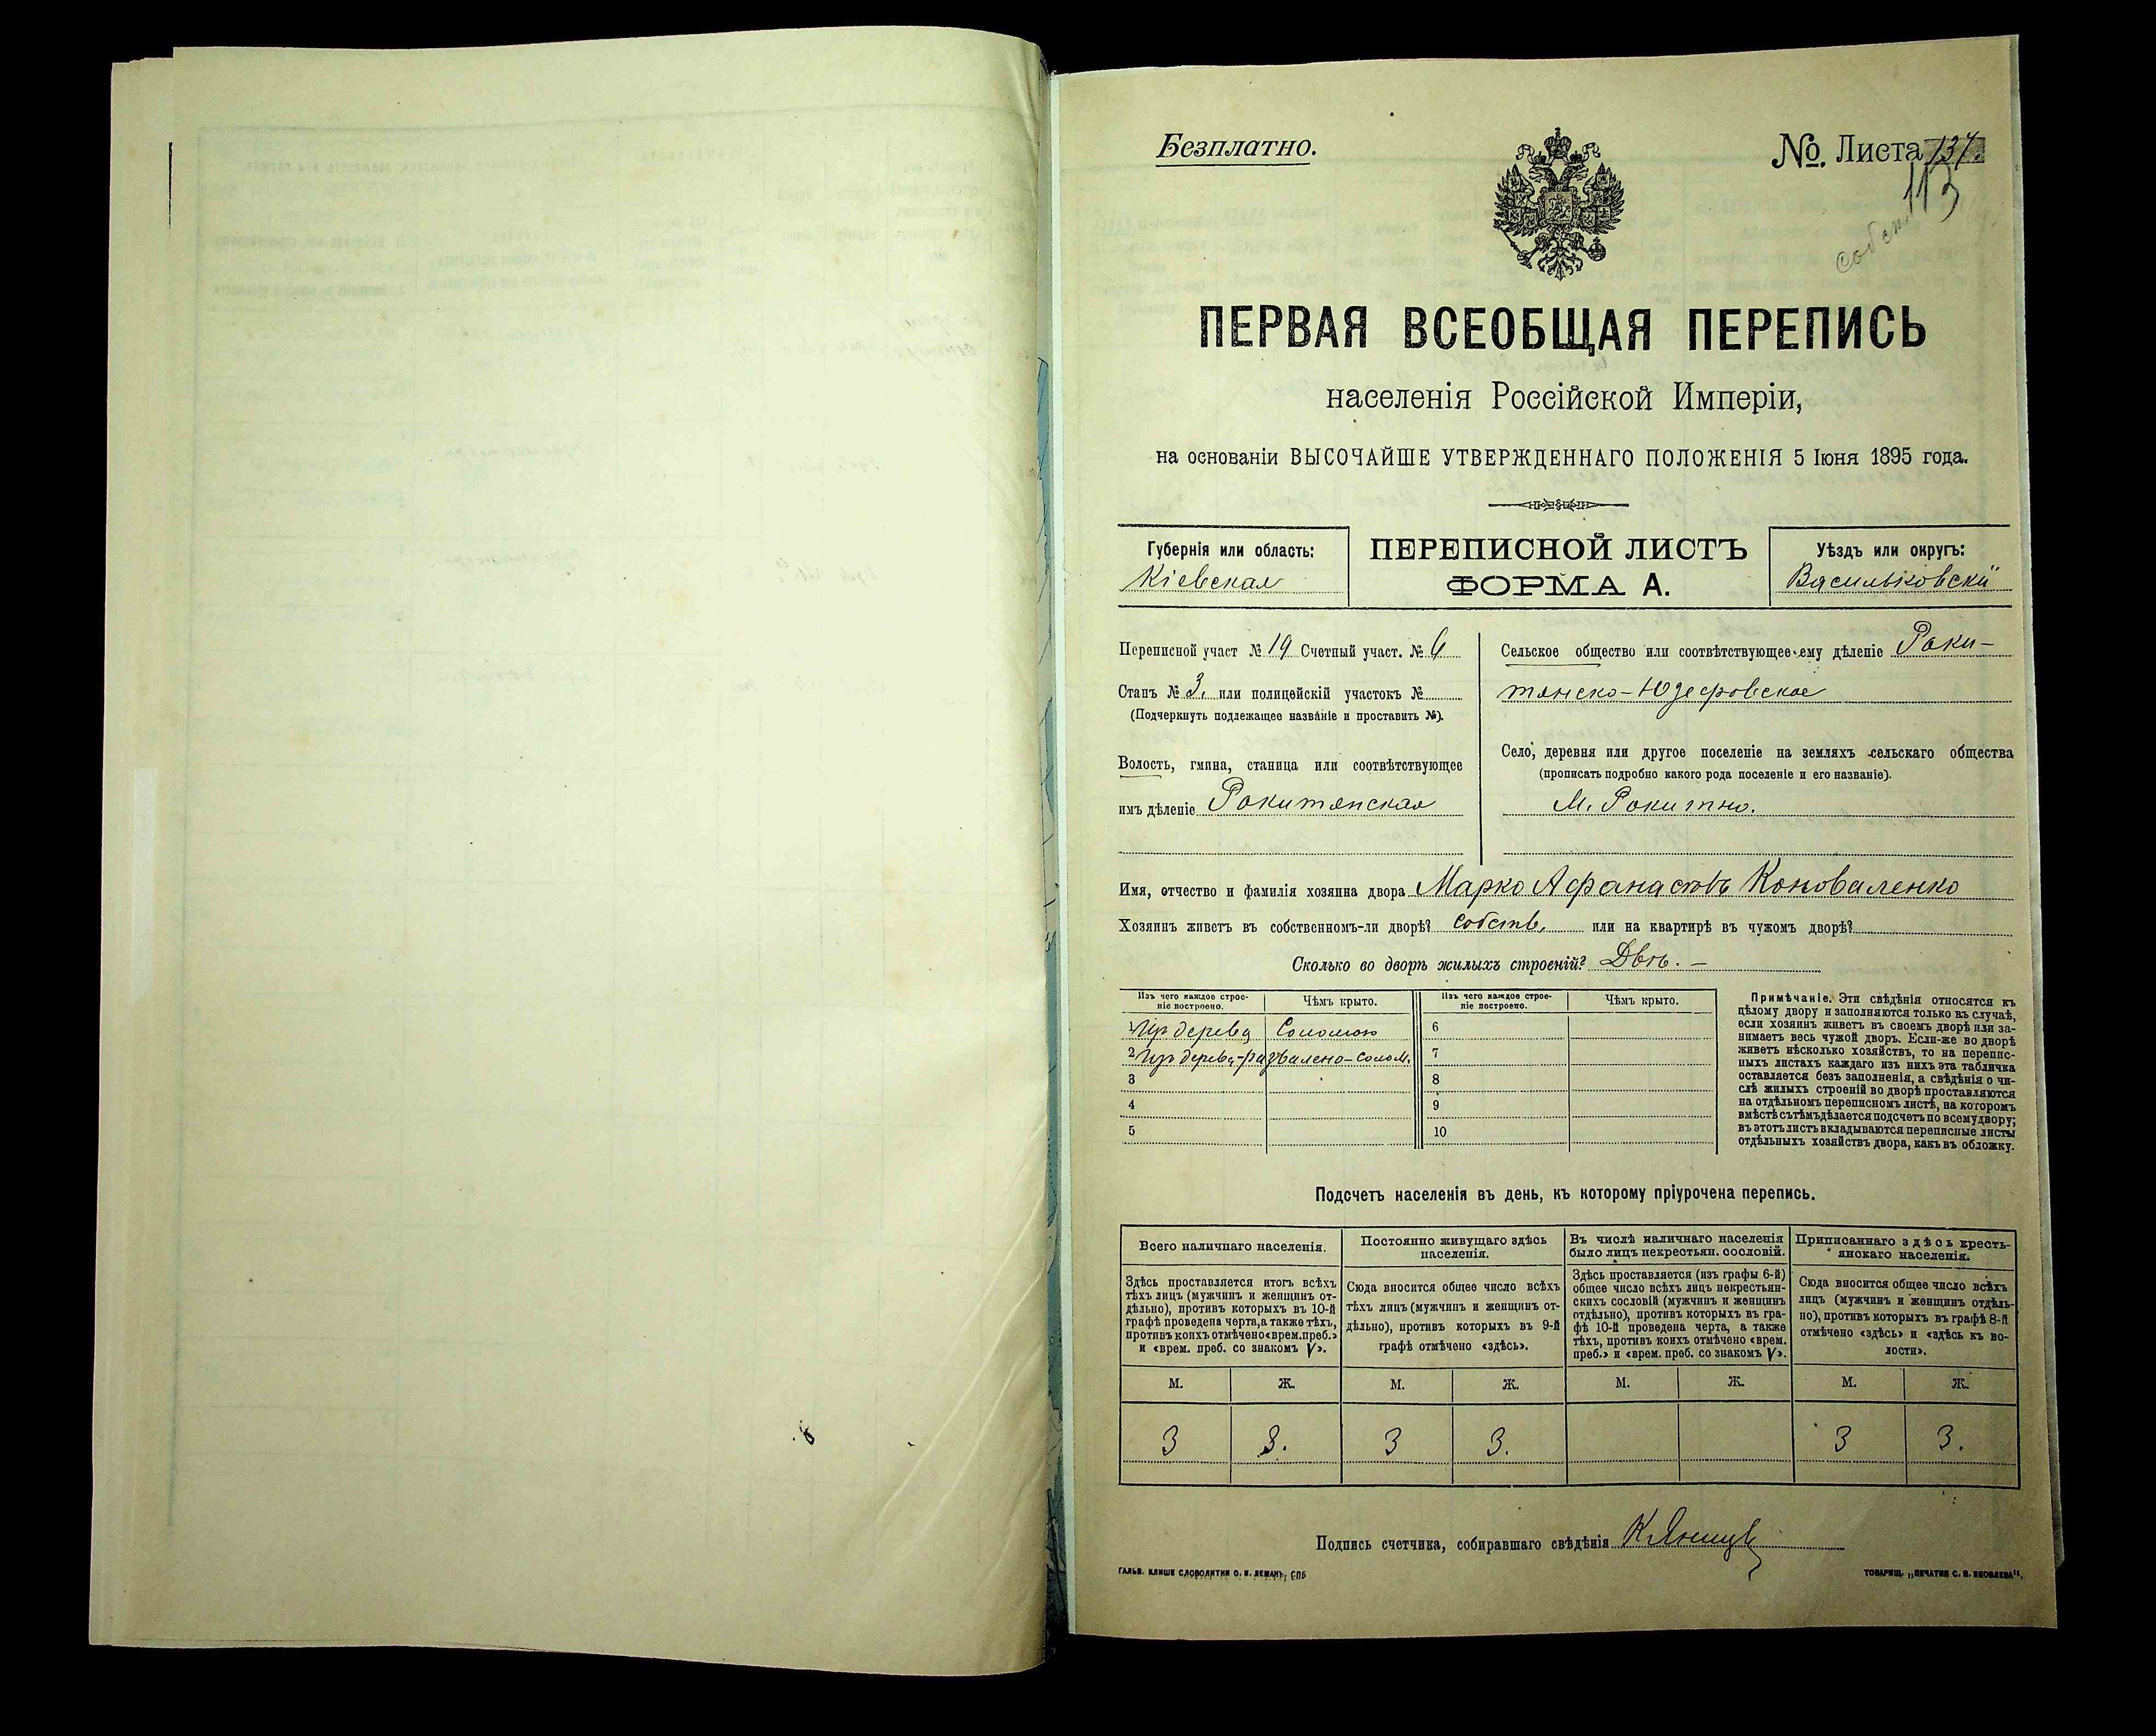 Безплатно.
№. Листа 137.
113
собств.
ПЕРВАЯ ВСЕОБЩАЯ ПЕРЕПИСЬ
населенія Россійской Имперіи,
на основаніи ВЫСОЧАЙШЕ УТВЕРЖДЕННАГО ПОЛОЖЕНІЯ 5 Іюня 1895 года.
Губернія или область:
Кіевская
ПЕРЕПИСНОЙ ЛИСТЪ
ФОРМА А.
Уѣздъ или округъ:
Васильковскій
Переписной участ № 19 Счетный участ. № 6
Станъ № 3, или полицейскій участокъ №
(Подчеркнуть подлежащее названіе и проставить №).
Волость, гмина, станица или соотвѣтствующее
имъ дѣленіе Рокитянская
Сельское общество или соотвѣтствующее ему дѣленіе Роки-
тянско-Юзефовское
Село, деревня или другое поселеніе на земляхъ сельскаго общества
(прописать подробно какого рода поселеніе и его названіе).
М. Рокитно.
Имя, отчество и фамилія хозяина двора Марко Афанасьевъ Коноваленко
Хозяинъ живетъ въ собственномъ-ли дворѣ? собств. или на квартирѣ въ чужомъ дворѣ?
Сколько во дворѣ жилыхъ строеній? Двѣ. –
Изъ чего каждое строе-
ніе построено.
Чѣмъ крыто.
1 Изъ дерева Соломою
2 Изъ дерева-развалено-солом.
3
4
5
Изъ чего каждое строе-
ніе построено.
Чѣмъ крыто.
6
7
8
9
10
Примѣчаніе. Эти свѣдѣнія относятся къ
цѣлому двору и заполняются только въ случаѣ,
если хозяинъ живетъ въ своемъ дворѣ или за-
нимаетъ весь чужой дворъ. Если-же во дворѣ
живетъ нѣсколько хозяйствъ, то на перепис-
ныхъ листахъ каждаго изъ нихъ эта табличка
оставляется безъ заполненія, а свѣдѣнія о чи-
слѣ жилыхъ строеній во дворѣ проставляются
на отдѣльномъ переписномъ листѣ, на которомъ
вмѣстѣ съ тѣмъ дѣлается подсчетъ по всему двору;
въ этотъ листъ вкладываются переписные листы
отдѣльныхъ хозяйствъ двора, какъ въ обложку.
Подсчетъ населенія въ день, къ которому пріурочена перепись.
Всего наличнаго населенія.
Здѣсь проставляется итогъ всѣхъ
тѣхъ лицъ (мужчинъ и женщинъ от-
дѣльно), противъ которыхъ въ 10-й
графѣ проведена черта, а также тѣхъ,
противъ коихъ отмѣчено «врем. преб.»
и «врем. преб. со знакомъ V».
Постоянно живущаго здѣсь
населенія.
Сюда вносится общее число всѣхъ
тѣхъ лицъ (мужчинъ и женщинъ от-
дѣльно), противъ которыхъ въ 9-й
графѣ отмѣчено «здѣсь».
Въ числѣ наличнаго населенія
было лицъ некрестьян. сословій.
Здѣсь проставляется (изъ графы 6-й)
общее число всѣхъ лицъ некрестьян-
скихъ сословій (мужчинъ и женщинъ
отдѣльно), противъ которыхъ въ гра-
фѣ 10-й проведена черта, а также
тѣхъ, противъ коихъ отмѣчено «врем.
преб.» и «врем. преб. со знакомъ V».
Приписаннаго здѣсь кресть-
янскаго населенія.
Сюда вносится общее число всѣхъ
лицъ (мужчинъ и женщинъ отдѣль-
но), противъ которыхъ въ графѣ 8-й
отмѣчено «здѣсь» и «здѣсь къ во-
лости».
М. Ж. М. Ж. М. Ж. М. Ж.
3 3. 3 3. 3 3.
Подпись счетчика, собиравшаго свѣдѣнія
ГАЛЬВ. КЛИШЕ СЛОВОЛИТНИ О. И. ЛЕМАНЪ, СПБ
ТОВАРИЩ. „ПЕЧАТНЯ С. П. ЯКОВЛЕВА“.